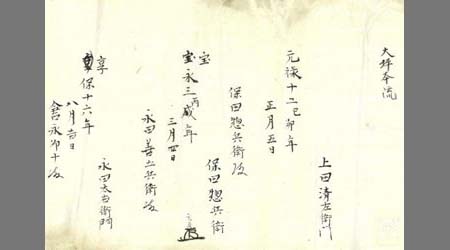 大坪本流
上田清左衛門
元禄十二己卯年
正月五日
保田惣兵衛殿
保田惣兵衛
宝
宝永三丙戌年
三月四日
永田善兵衛殿
永田太右衛門
享
保十六年
八月吉日